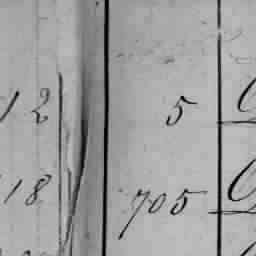 12 5
18 705